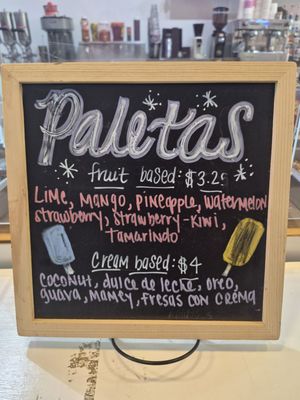 Paletas
fruit based: $3.25
Lime, Mango, Pineapple, Watermelon
Strawberry, Strawberry-Kiwi,
Tamarindo
Cream based: $4
Coconut, dulce de leche, Oreo,
guava, Mamey, Fresas con crema